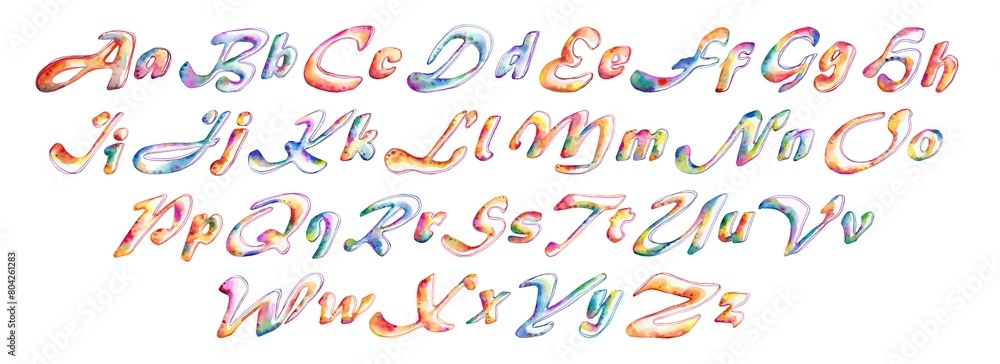 Aa Bb Cc Dd Ee Ff Gg Hh
Ii Jj Kk Ll Mm Nn Oo
Pp Qq Rr Ss Tt Uu Vv
Ww Xx Yy Zz
Adobe Stock | #804261283